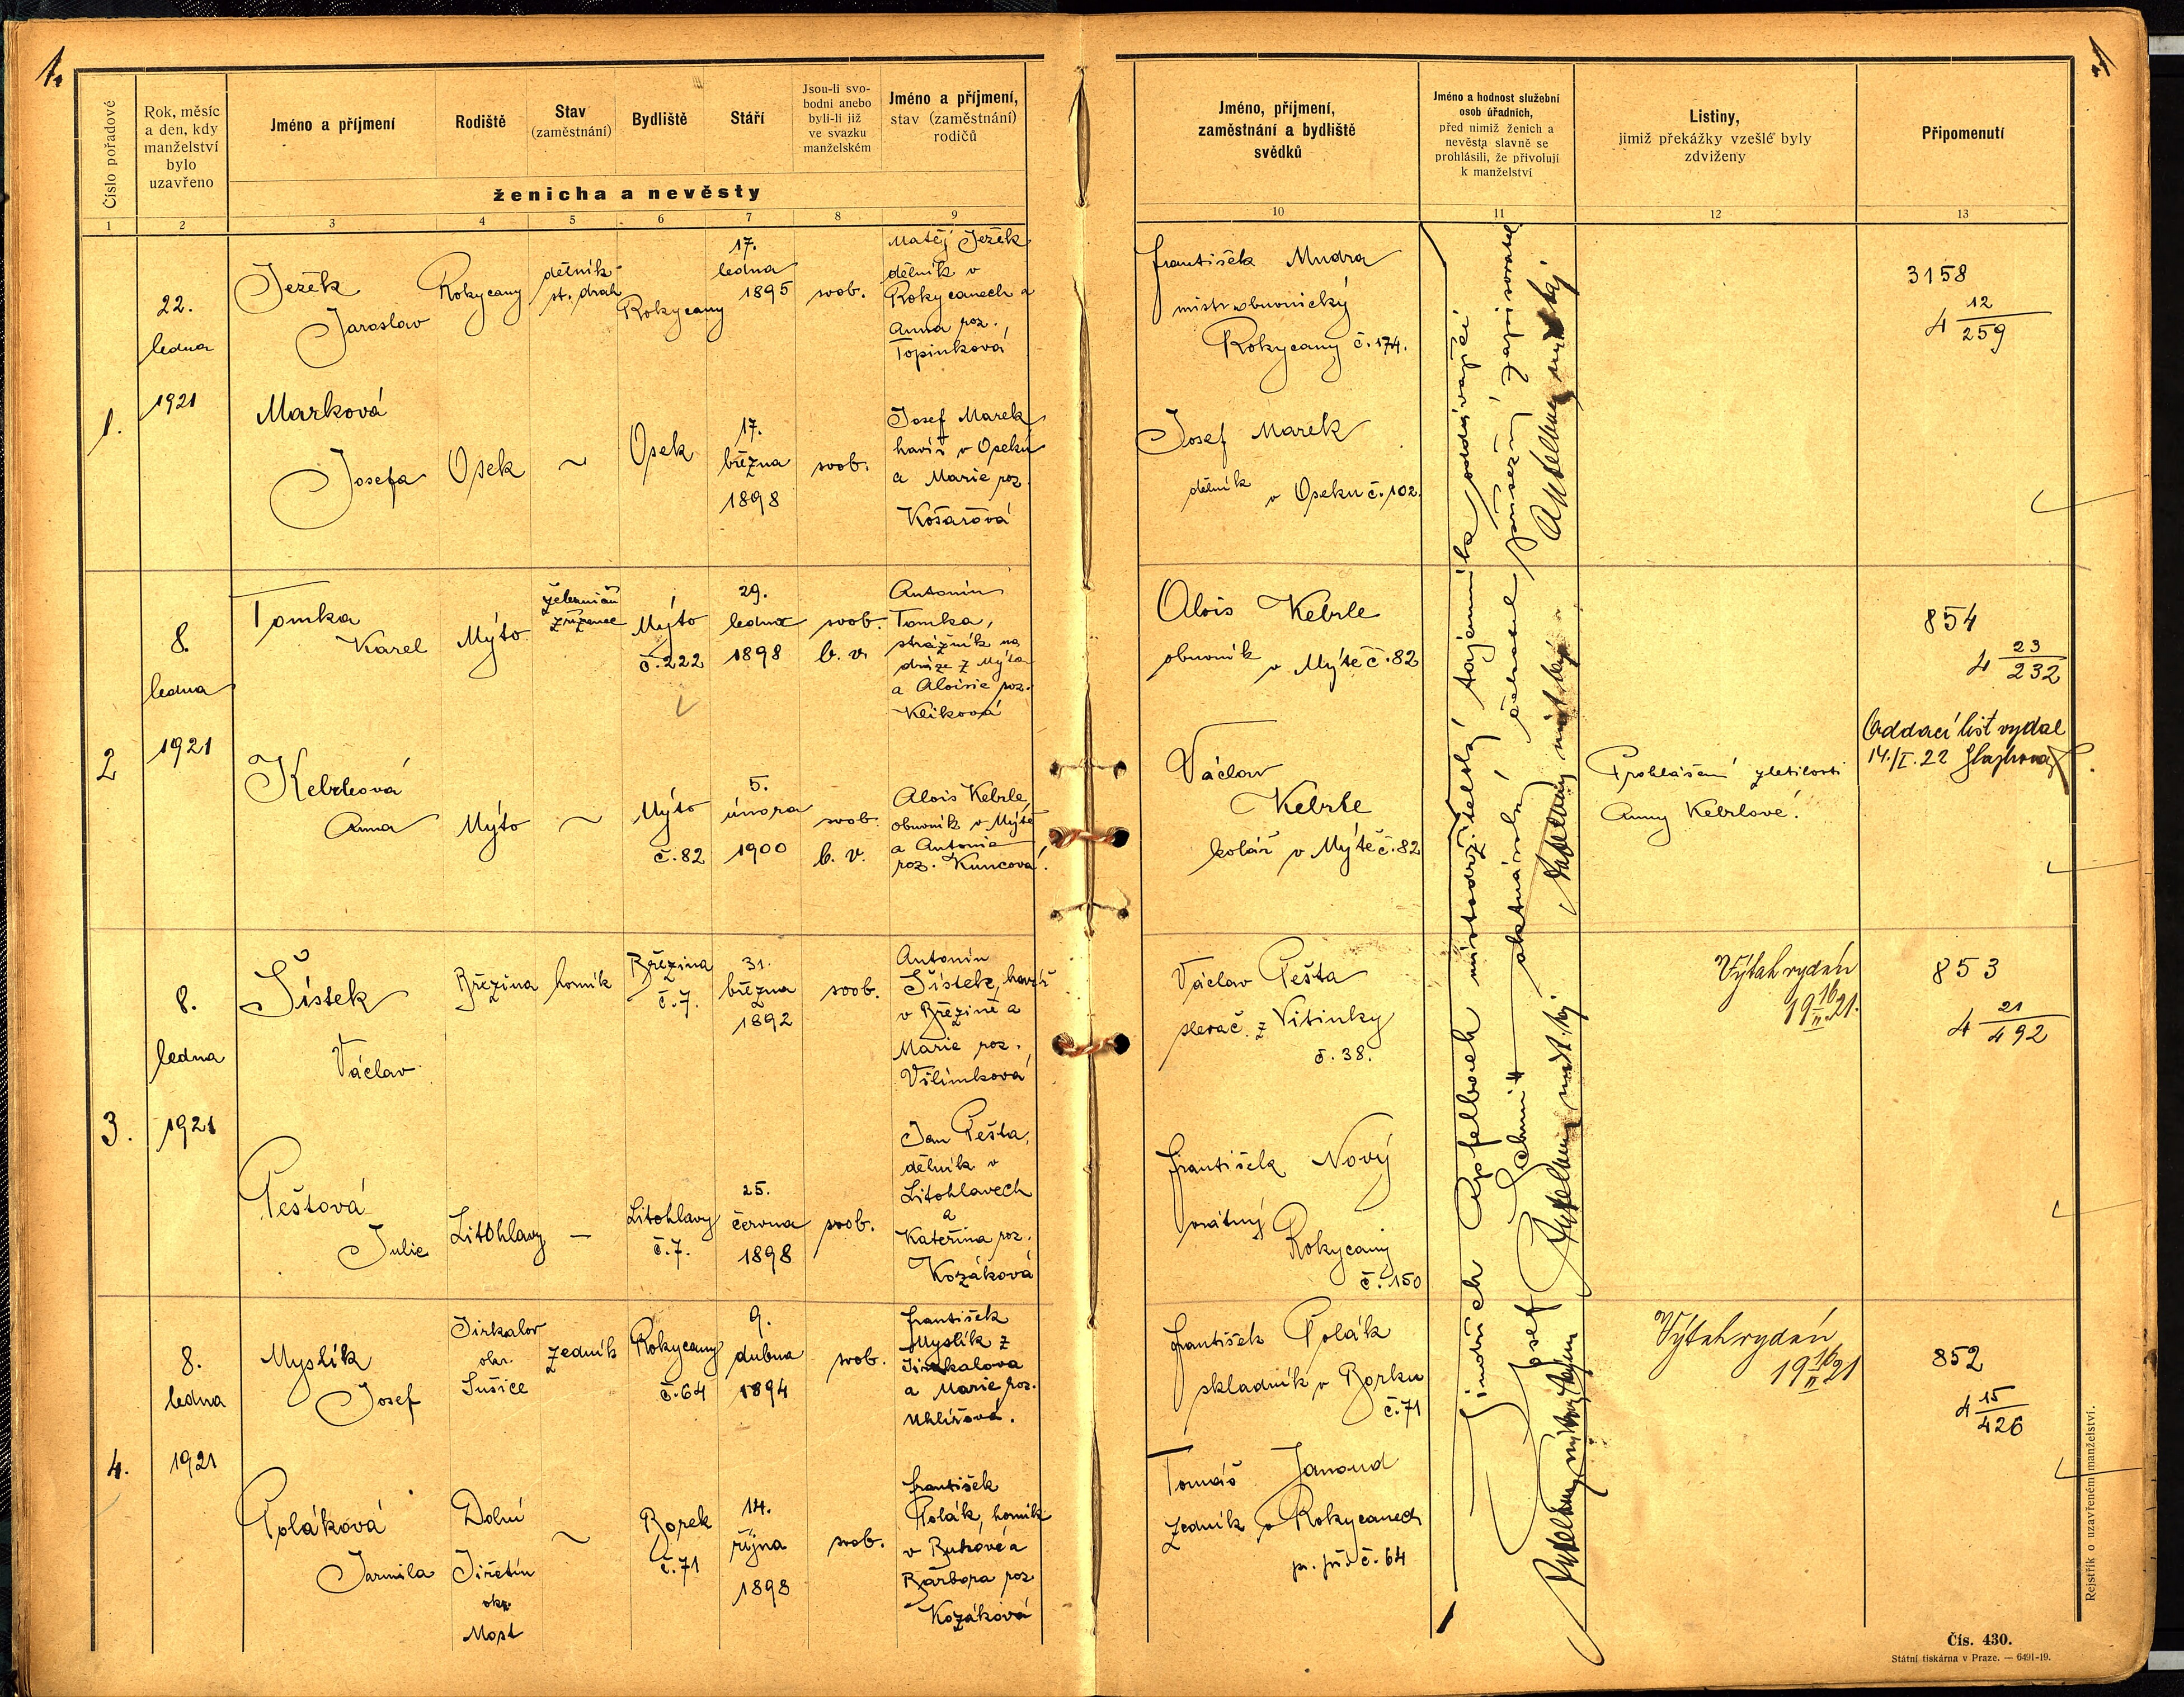 1.
Číslo pořadové
Rok, měsíc
a den, kdy
manželství
bylo
uzavřeno
Jméno a příjmení
Rodiště
Stav
(zaměstnání)
Bydliště
Stáří
Jsou-li svo-
bodni anebo
byli-li již
ve svazku
manželském
Jméno a příjmení,
stav (zaměstnání)
rodičů
ženicha a nevěsty
1 2 3 4 5 6 7 8 9
1.
22.
ledna
1921
Ježek
Jaroslav
Rokycany
dělník
st. drah
Rokycany
17.
ledna
1895
svob.
Matěj Ježek
dělník v
Rokycanech a
Anna roz.
Topinková
Marková
Josefa
Osek
~
Osek
17.
března
1898
svob.
Josef Marek
havíř v Oseku
a Marie roz.
Košařová
2
8.
ledna
1921
Tomka
Karel
Mýto
zřízenec
Mýto
č. 222
29.
ledna
1898
svob.
b. v.
Antonín
Tomka,
strážník na
dráze z Mýta
a Aloisie roz.
Kliková
Kebrlová
Anna
Mýto
~
Mýto
č. 82
5.
února
1900
svob.
b. v.
Alois Kebrle,
obuvník v Mýtě
a Antonie
roz. Kuncová.
3.
8.
ledna
1921
Šístek
Václav
Březina
horník
Březina
č. 7.
31.
března
1892
svob.
Antonín
Šístek, havíř
v Březině a
Marie roz.
Vilímková
Peštová
Julie
Litohlavy
—
Litohlavy
č. 7.
25.
června
1898
svob.
Jan Pešta,
dělník v
Litohlavech
a
Kateřina roz.
Kozáková
4.
8.
ledna
1921
Myslík
Josef
Jirkalov
okr.
Sušice
zedník
Rokycany
č. 64
9.
dubna
1894
svob.
František
Myslík z
Jirkalova
a Marie roz.
Uhlířová.
Poláková
Jarmila
Dolní
Jiřetín
okr.
Most
~
Borek
č. 71
14.
října
1898
svob.
František
Polák, horník
v
Barbora roz
Kozáková
Jméno, příjmení,
zaměstnání a bydliště
svědků
Jméno a hodnost služební
osob úřadních,
před nimiž ženich a
nevěsta slavně se
prohlásili, že přivolují
k manželství
Listiny,
jimiž překážky vzešlé byly
zdviženy
Připomenutí
10 11 12 13
František Mudra
mistr obuvnický
Rokycany č. 174.
Josef Marek
dělník
v Oseku č. 102.
3158
4 12/259
Alois Kebrle
obuvník
v Mýtě č. 82
Václav
Kebrle
kolář v Mýtě č. 82
Prohlášení zletilosti
Anny Kebrlové.
854
4 23/232
Oddací list vydal
14./I. 22
Václav Pešta
slevač z Vitinky
č. 38.
František Nový
vrátný
Rokycany
č. 150
Výtah vydán
19 16/II 21.
853
4 21/492
František Polák
skladník v Borku
č. 71
Tomáš Janoud
zedník v Rokycanech
č. 64
Výtah vydán
19 16/II 21
852
4 15/426
Jindřich Apfelbeck místodržitelský tajemník, oddávající
Josef Schmitt
Rejstřík o uzavřeném manželství.
Čís. 430.
Státní tiskárna v Praze. — 6491-19.